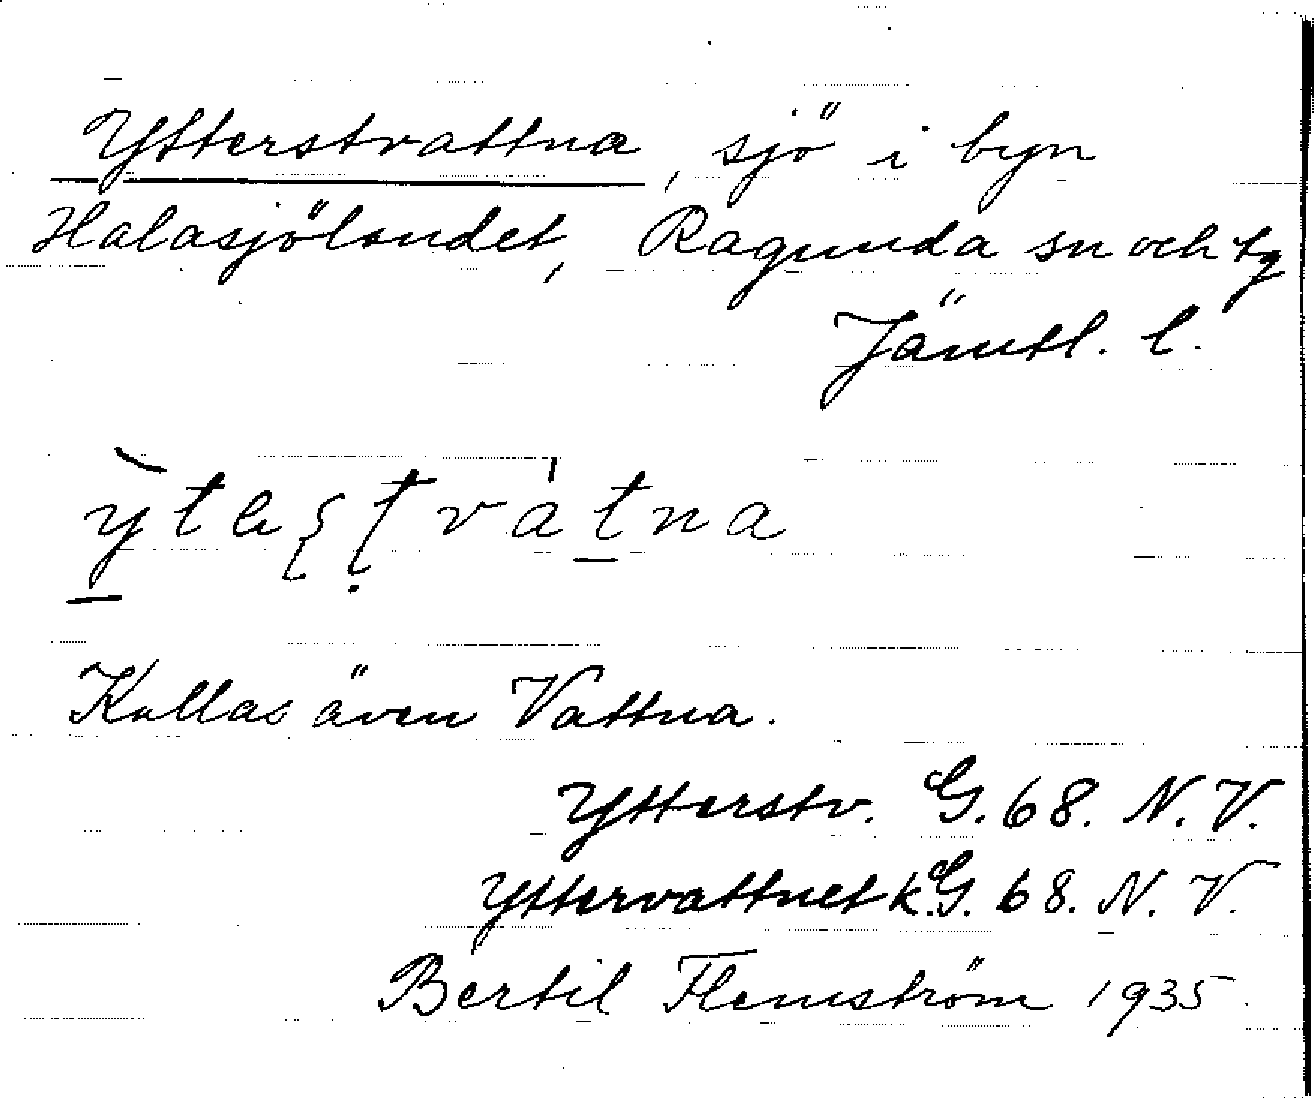 Ytterstvattna, sjö i byn
Halasjölandet, Ragunda sn och tg
Jämtl. l.
Kallas även Vattna.
Ytterstv. G. 68. N. V.
Yttervattnet k. G. 68. N. V.
Bertil Flemström 1935.